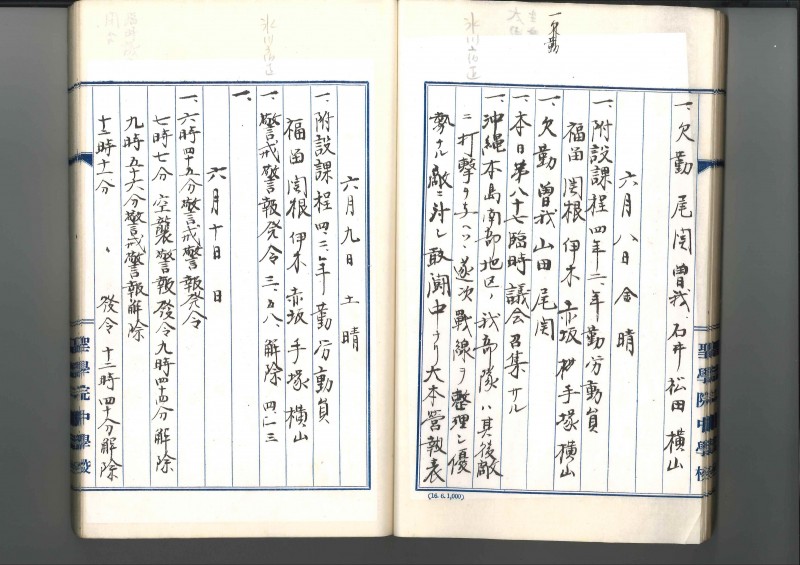 一欠勤
一、欠勤 尾関 曽我 石井 松田 横山
六月八日 金 晴
一、附設課程四年二年勤労動員
福函 関根 伊木 赤坂 手塚 横山
一、欠勤 曽我 山田 尾関
一、本日第八十七臨時議会召集サル
一、沖縄本島南部地区ノ我部隊ハ其後敵
ニ打撃ヲ与ヘツヽ逐次戦線ヲ整理シ優
勢ナル敵ニ対シ敢闘中ナリ大本営報表
(16. 6. 1,000)
聖學院中學校
六月九日 土 晴
一、附設課程四三年勤労動員
福函 関根 伊木 赤坂 手塚 横山
一、警戒警報発令 三、五八、解除 四、二三
一、
六月十日 日
一、六時四十五分警戒警報発令
七時七分 空襲警報發令九時四十四分解除
九時五十六分警戒警報解除
十二時十一分 〃 發令 十二時四十分解除
聖學院中學校